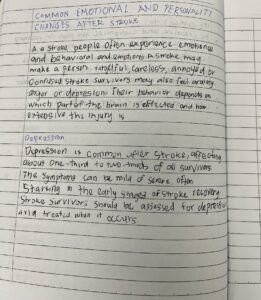 COMMON EMOTIONAL AND PERSONALITY
CHANGES AFTER STROKE
A a stroke people often experience emotional
and behavioral and emotions A stroke may
make a person forgetful, careless, annoyed or
Confused stroke survivors may also feel anxiety
anger or depression. Their behavior depends on
which part of the brain is effected and how
extensive the injury is
Depression
Depression is common after stroke, affecting
about one-third to two-thirds of all survivors
The symptoms can be mild of severe often
Starking in the early stages of stroke recovery
Stroke survivors should be assessed for depression
and treated when it occurs.